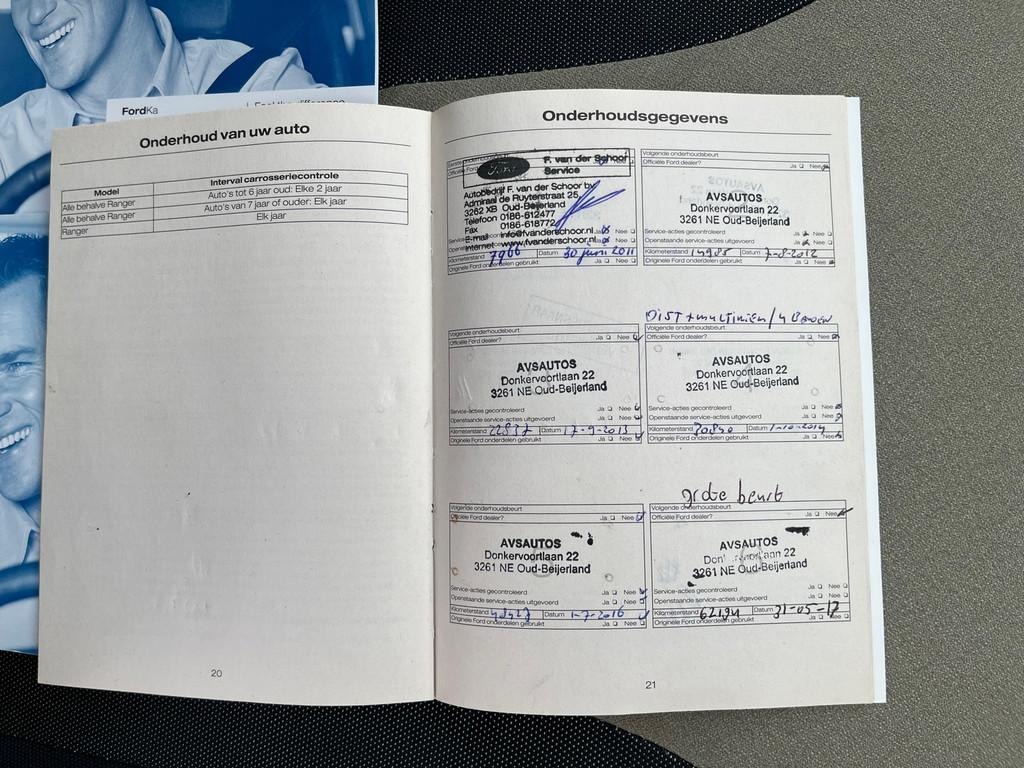 FordKa
Onderhoud van uw auto
Model
Interval carrosseriecontrole
Alle behalve Ranger
Auto's tot 6 jaar oud: Elke 2 jaar
Alle behalve Ranger
Auto's van 7 jaar of ouder: Elk jaar
Ranger
Elk jaar
20
Onderhoudsgegevens
Ford
F. van der Schoor
Service
Autobedrijf F. van der Schoor bv
Admiraal de Ruyterstraat 25
3262 XB Oud-Beijerland
Telefoon 0186-612477
Fax 0186-618772
E-mail info@fvanderschoor.nl
Internet www.fvanderschoor.nl
Kilometerstand 7966 Datum 30 juni 2011
Originele Ford onderdelen gebruikt Ja Nee
Volgende onderhoudsbeurt
Officiële Ford dealer? Ja Nee
AVSAUTOS
Donkervoortlaan 22
3261 NE Oud-Beijerland
Service-acties gecontroleerd Ja Nee
Openstaande service-acties uitgevoerd Ja Nee
Kilometerstand 14985 Datum 7-8-2012
Originele Ford onderdelen gebruikt Ja Nee
Volgende onderhoudsbeurt
Officiële Ford dealer? Ja Nee
AVSAUTOS
Donkervoortlaan 22
3261 NE Oud-Beijerland
Service-acties gecontroleerd Ja Nee
Openstaande service-acties uitgevoerd Ja Nee
Kilometerstand 22837 Datum 17-9-2013
Originele Ford onderdelen gebruikt Ja Nee
Volgende onderhoudsbeurt
Officiële Ford dealer? Ja Nee
AVSAUTOS
Donkervoortlaan 22
3261 NE Oud-Beijerland
Service-acties gecontroleerd Ja Nee
Openstaande service-acties uitgevoerd Ja Nee
Kilometerstand Datum 1-10-2014
Originele Ford onderdelen gebruikt Ja Nee
Volgende onderhoudsbeurt
Officiële Ford dealer? Ja Nee
AVSAUTOS
Donkervoortlaan 22
3261 NE Oud-Beijerland
Service-acties gecontroleerd Ja Nee
Openstaande service-acties uitgevoerd Ja Nee
Kilometerstand Datum 1-7-2016
Originele Ford onderdelen gebruikt Ja Nee
grote beurt
Volgende onderhoudsbeurt
Officiële Ford dealer? Ja Nee
AVSAUTOS
22
3261 NE Oud-Beijerland
Service-acties gecontroleerd Ja Nee
Openstaande service-acties uitgevoerd Ja Nee
Kilometerstand 62194 Datum 31-05-17
Originele Ford onderdelen gebruikt Ja Nee
21